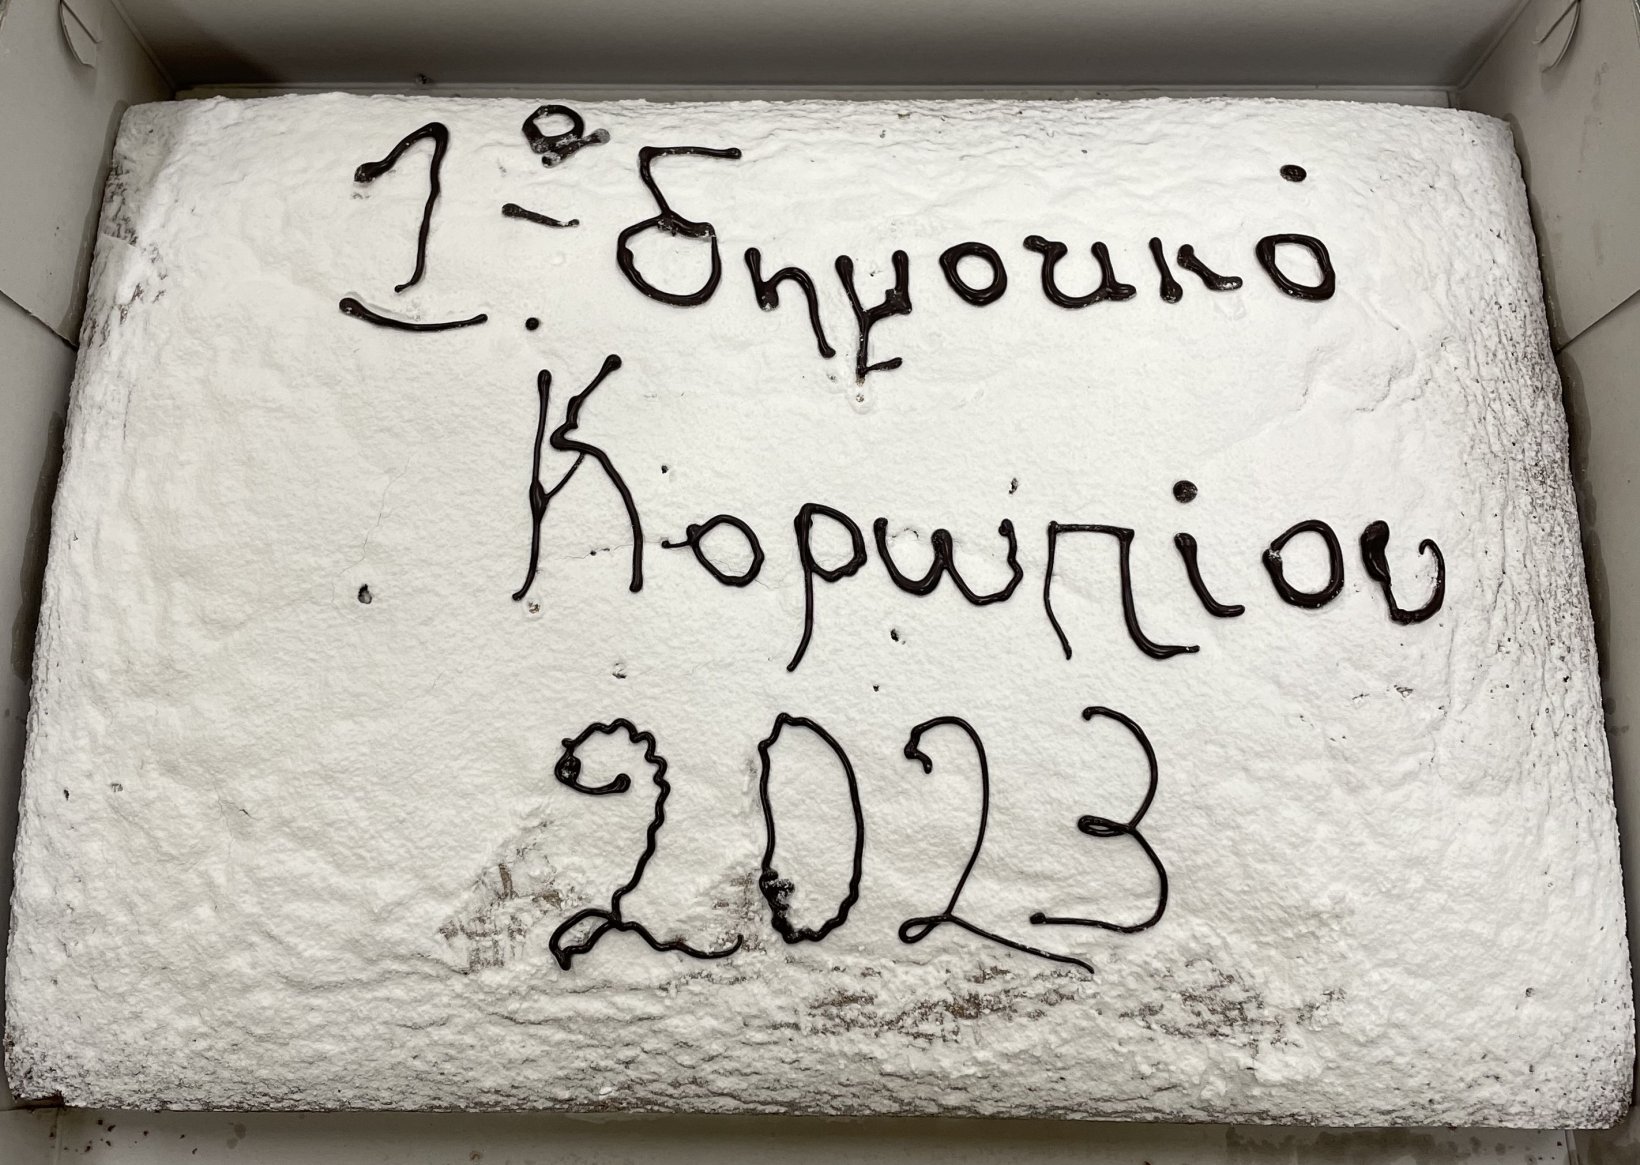 1ο δημοτικό
Κορωπίου
2023